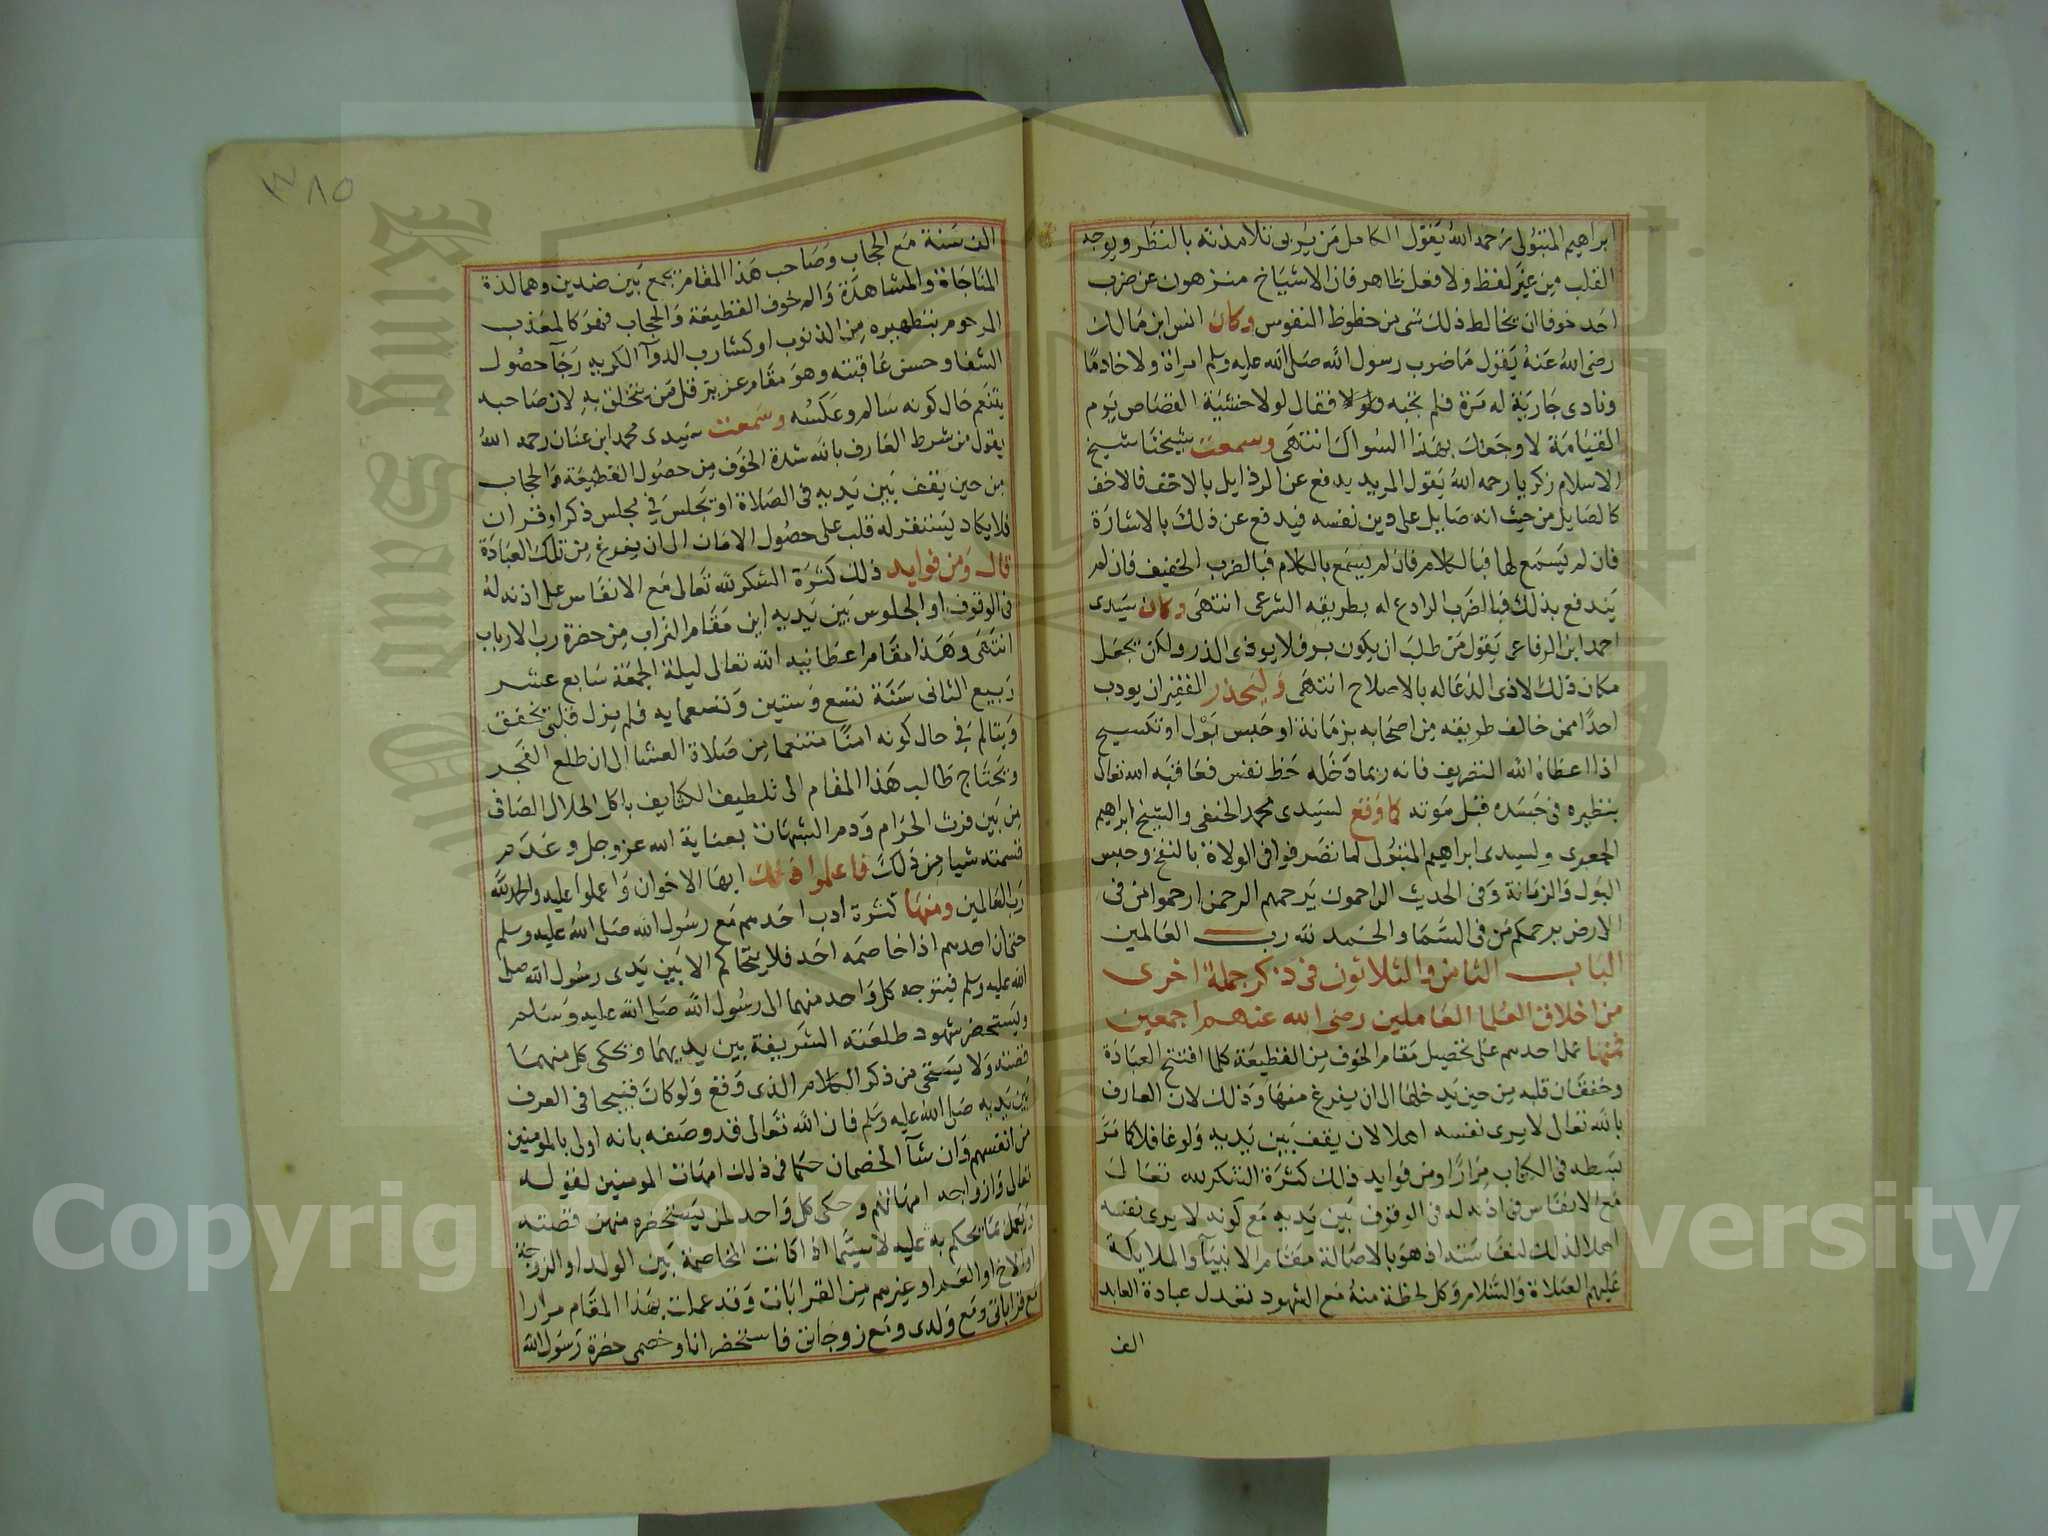 ابراهيم المتبولى رحمه الله يقول الكامل من يربى تلامذته بالنظر ويوجه
القلب من غير لفظ ولا فعل ظاهر فان الاشياخ منزهون عن ضرب
احد خوفا ان يخالط ذلك شى من حظوظ النفوس وكان انس ابن مالك
رضى الله عنه يقول ما ضرب رسول الله صلى الله عليه وسلم امراة ولا خادما
ونادى جارية له مرة فلم تجبه فقال لولا خشية القصاص يوم
القيامة لاوجعتك بهذا السواك انتهى وسمعت شيخنا شيخ
الاسلام زكريا رحمه الله يقول المريد يدفع عن الرذايل بالاخف فالاخف
كالصايل من حيث انه صايل على دين نفسه فيدفع عن ذلك بالاشارة
فان لم يسمع لها فبالكلام فان لم يسمع بالكلام فبالضرب الخفيف فان لم
يندفع بذلك فبالضرب الرادع له بطريقه الشرعى انتهى وكان سيدى
احمد ابن الرفاعى يقول من طلب ان يكون بر فلا يوذى الذر ولكن يجعل
مكان ذلك الاذى الدعا له بالاصلاح انتهى وليحذر الفقير ان يودب
احدا ممن خالف طريقه من اصحابه بزمانة او حبس بول او تكسيح
اذا اعطاه الله التصريف فانه ربما دخله حظ نفس فعاقبه الله تعالى
بنظيره فى جسده قبل موته كما وقع لسيدى محمد الحنفى والشيخ ابراهيم
الجعبرى ولسيدى ابراهيم المتبولى لما تصرفوا فى الولاة بالنفخ وحبس
البول والزمانة وفى الحديث الراحمون يرحمهم الرحمن ارحموا من فى
الارض يرحمكم من فى السما والحمد لله رب العالمين
الباب الثامن والثلاثون فى ذكر جملة اخرى
من اخلاق العلما العاملين رضى الله عنهم اجمعين
فمنها عمل احدهم على تحصيل مقام الخوف من القطيعة كلما افتتح العبادة
وخفقان قلبه من حين يدخلها الى ان يفرغ منها وذلك لان العارف
بالله تعالى لا يرى نفسه اهلا لان يقف بين يديه ولو غافلا كما مر
بسطه فى الكتاب مرارا ومن فوايد ذلك كثرة الشكر لله تعالى
مع الانفاس فى اذنه له فى الوقوف بين يديه مع كونه لا يرى نفسه
اهلا لذلك لنفاسته اذ هو بالاصالة مقام الانبيآ والملايكة
عليهم الصلاة والسلام وكل لحظة منه مع الشهود تعدل عبادة العابد
الف
٣٨٥
الف سنة مع الحجاب وصاحب هذا المقام يجمع بين ضدين وهما لذة
المناجاة والمشاهدة والم خوف القطيعة والحجاب فهو كالمعذب
المرحوم بتطهيره من الذنوب او كشارب الدوآ الكريه رجآ حصول
الشفا وحسن عاقبته وهو مقام عزيز قل من يتخلق به لان صاحبه
يتنعم حال كونه سالم وعكسه وسمعت سيدى محمد ابن عنان رحمه الله
يقول من شرط العارف بالله شدة الخوف من حصول القطيعة والحجاب
من حين يقف بين يديه فى الصلاة او يجلس فى مجلس ذكر او قران
فلا يكاد يستقر له قلب على حصول الامان الى ان يفرغ من تلك العبادة
قال ومن فوايد ذلك كثرة الشكر لله تعالى مع الانفاس على اذنه له
فى الوقوف او الجلوس بين يديه اين مقام التراب من حضرة رب الارباب
انتهى وهذا مقام اعطانيه الله تعالى ليلة الجمعة سابع عشر
ربيع الثانى سنة تسع وستين وتسعمايه فلم يزل قلبى يخفق
ويتالم فى حال كونه امنا متنعما من صلاة العشا الى ان طلع الفجر
ويحتاج طالب هذا المقام الى تلطيف الكثايف باكل الحلال الصافى
من بين فرث الحرام ودم الشبهات بعناية الله عز وجل وعدم
قسمته شيا من ذلك فاعلموا ذلك ايها الاخوان واعملوا عليه والحمد لله
رب العالمين ومنها كثرة ادب احدهم مع رسول الله صلى الله عليه وسلم
حتى ان احدهم اذا خاصمه احد فلا يتحاكم الا بين يدى رسول الله صلى
الله عليه وسلم فيتوجه كل واحد منهما الى رسول الله صلى الله عليه وسلم
ويستحضر شهود طلعته الشريفة بين يديهما ويحكى كل منهما
قصته ولا يستحى من ذكر الكلام الذى وقع ولو كان قبيحا فى العرف
بين يديه صلى الله عليه وسلم فان الله تعالى قد وصفه بانه اولى بالمومنين
من انفسهم وان شآ الخصمان حكما فى ذلك امهات المومنين لقوله
تعالى وازواجه امهاتهم وحكى كل واحد لمن يستحضره منهن قصته
ويعمل بما تحكم به عليه لا سيما اذا كانت المخاصمة بين الولد او الزوجة
او الاخ او العم او غيرهم من القرابات وقد عملت بهذا المقام مرارا
مع قراباتى ومع ولدى ومع زوجاتى فاستحضر انا وخصمى حضرة رسول الله